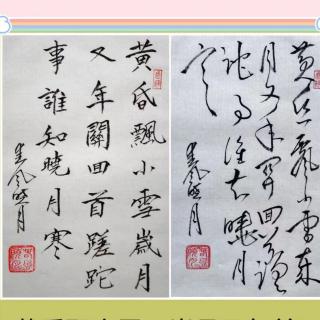 黄昏飄小雪歲月
又年關回首蹉跎
事誰知曉月寒
春风曉月
黄昏飄小雪歲
月又年關回首蹉
跎事誰知曉月
寒
春风曉月